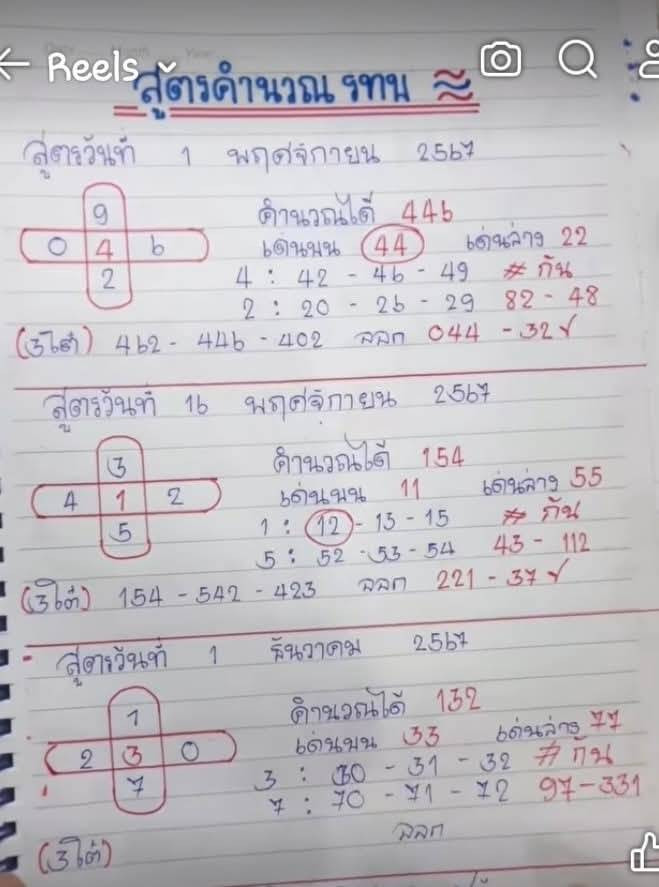 Reels
สูตรคำนวณ รทบ
สูตรวันที่ 1 พฤศจิกายน 2567
9
0 4 6
2
คำนวณได้ 446
เด่นบน 44 เด่นล่าง 22
4 : 42 - 46 - 49 # กัน
2 : 20 - 26 - 29 82 - 48
(3โต๊ด) 462 - 446 - 402 ออก 044 - 32 ✓
สูตรวันที่ 16 พฤศจิกายน 2567
3
4 1 2
5
คำนวณได้ 154
เด่นบน 11 เด่นล่าง 55
1 : 12 - 13 - 15 # กัน
5 : 52 - 53 - 54 43 - 112
(3โต๊ด) 154 - 542 - 423 ออก 221 - 37 ✓
สูตรวันที่ 1 ธันวาคม 2567
1
2 3 0
7
คำนวณได้ 132
เด่นบน 33 เด่นล่าง 77
3 : 30 - 31 - 32 # กัน
7 : 70 - 71 - 72 97 - 331
(3โต๊ด) ออก